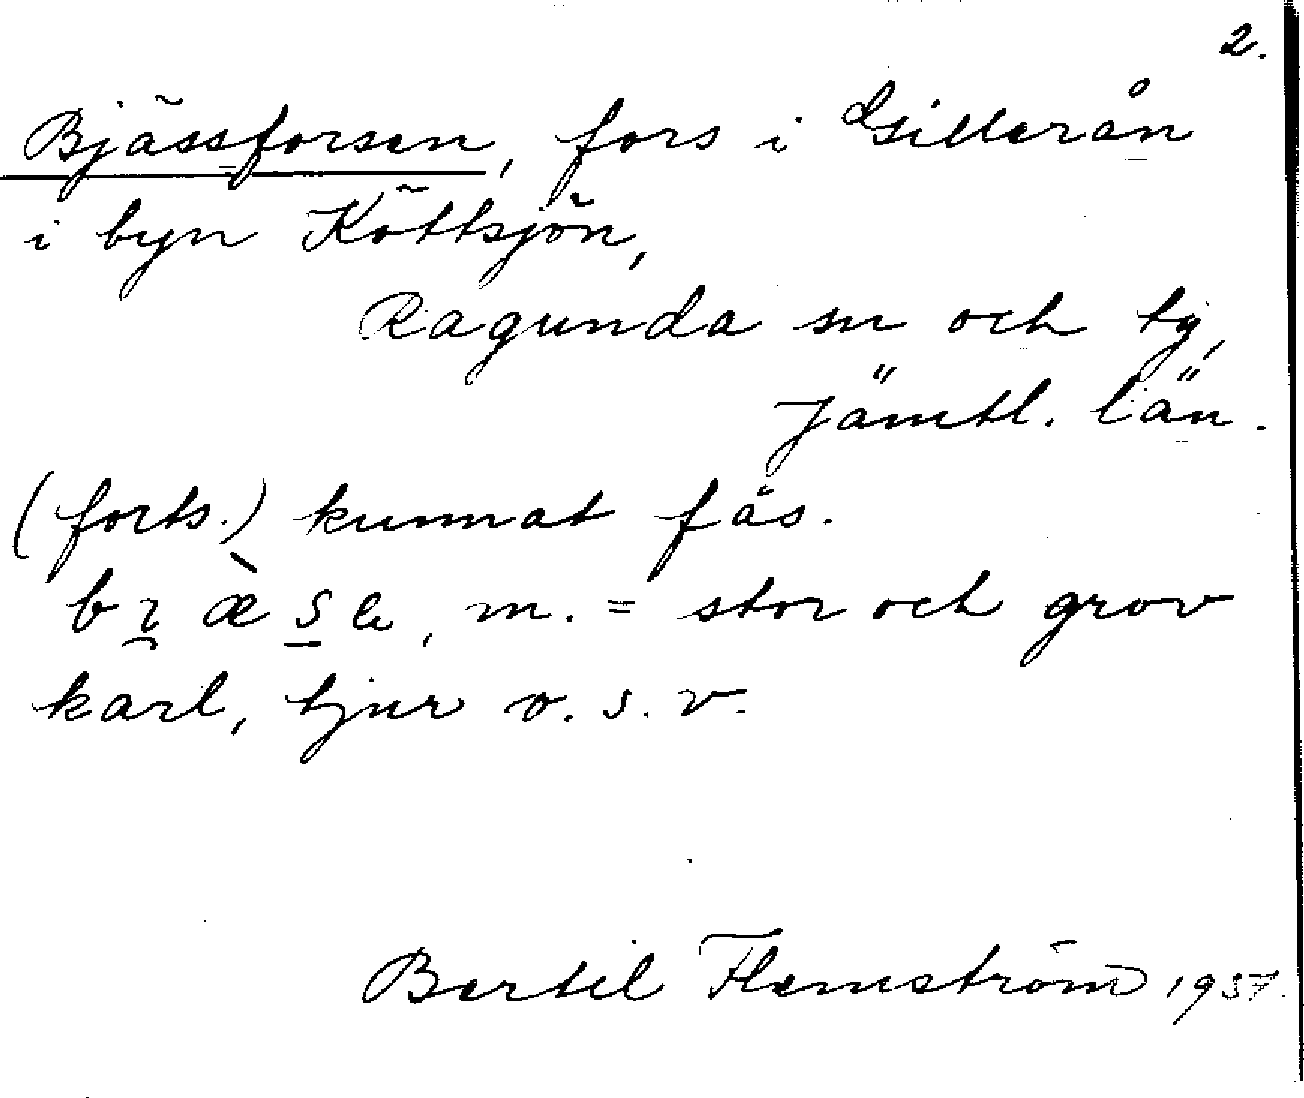 2.
Bjässforsen, fors i Gillerån
i byn Köttsjön,
Ragunda sn och tg,
Jämtl. län.
(forts.) kunnat fås.
m. = stor och grov
karl, tjur o. s. v.
Bertil Flemström 1957.